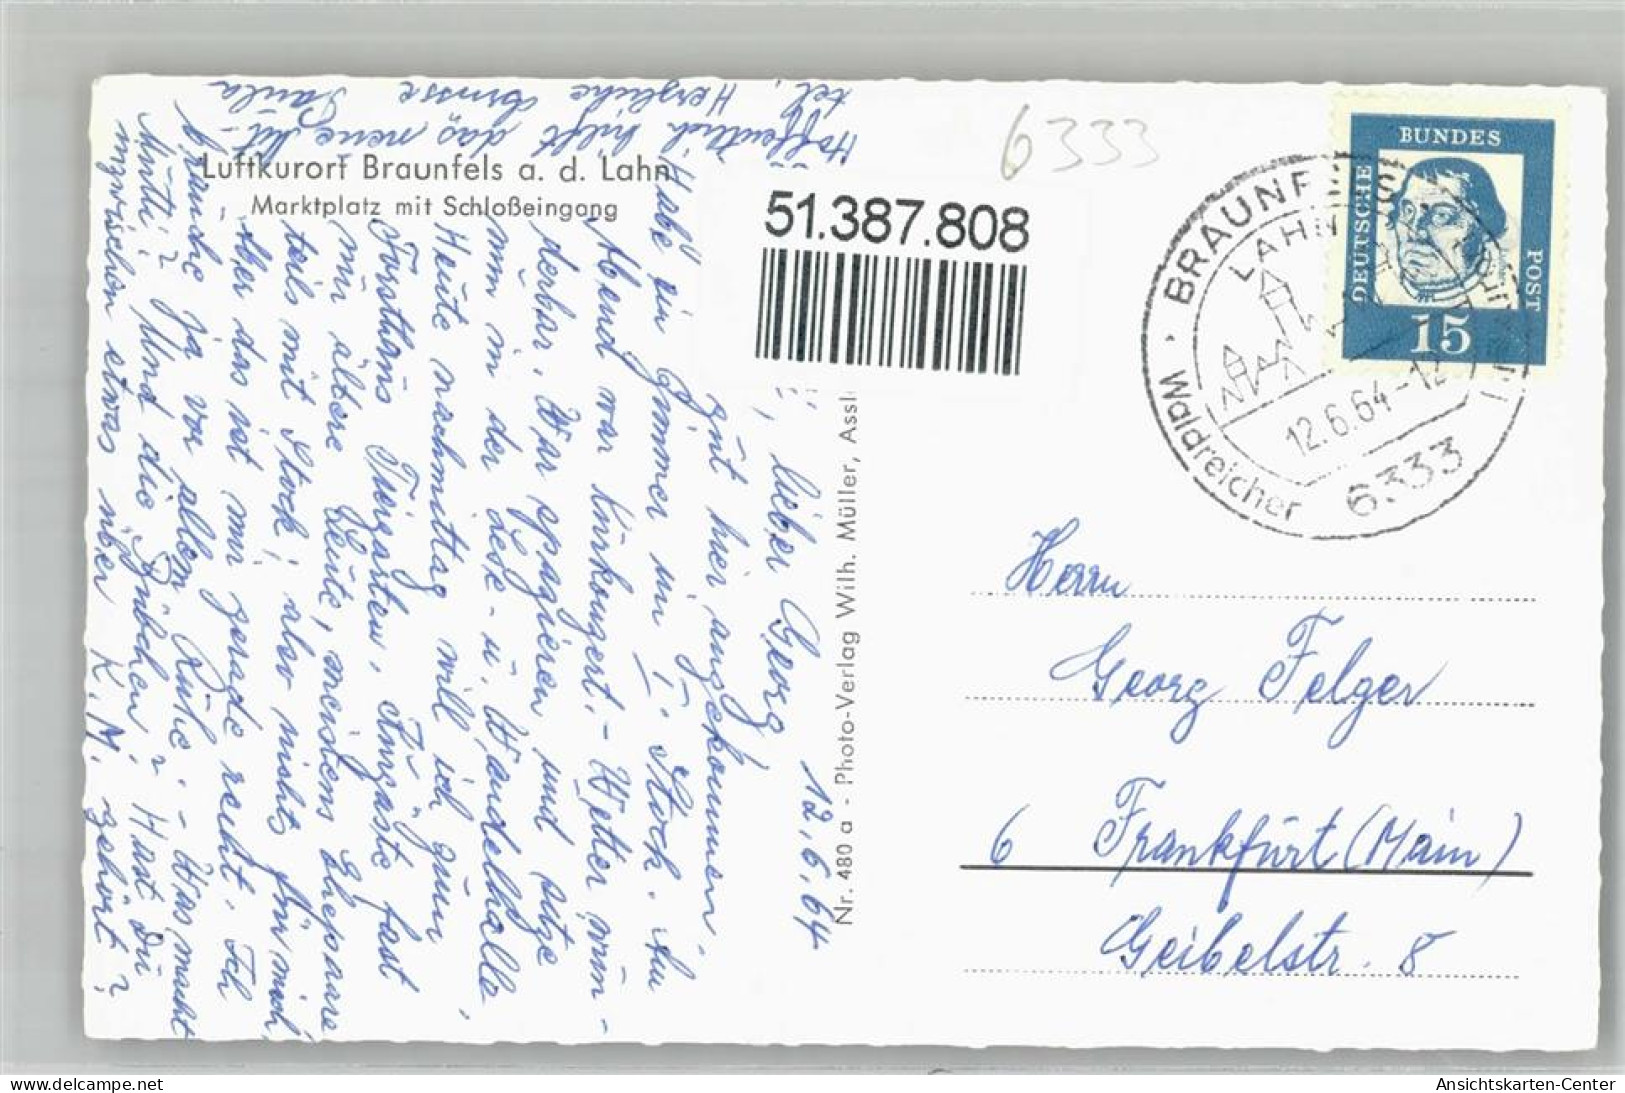 Luftkurort Braunfels a. d. Lahn
Marktplatz mit Schloßeingang
12.6.64
lieber Georg!
gut hier angekommen.
Habe ein Zimmer im I. Stock. Am
Abend war Kurkonzert. – Wetter wun-
derbar. War spazieren und sitze
nun in der Lese- u. Wandelhalle.
Heute nachmittag will ich zum
Forsthaus Tiergarten. Kurgäste fast
nur ältere Leute, meistens Ehepaare
teils mit Stock; also nichts für mich.
Aber das ist mir gerade recht. Ich
brauche ja vor allem Ruhe. – Was macht
Mutti? Und die Bübchen? Hast Du
inzwischen etwas über K. M. gehört?
Hoffentlich hilft das neue Mit-
tel. Herzliche Grüsse Paula
Nr. 480 a - Photo-Verlag Wilh. Müller, Assl
51.387.808
6333
DEUTSCHE
BUNDES
POST
15
BRAUNF
LAHN
12.6.64-12
Waldreicher
6333
Herrn
Georg Felger
6 Frankfurt (Main)
Geibelstr. 8
www.delcampe.net
Ansichtskarten-Center